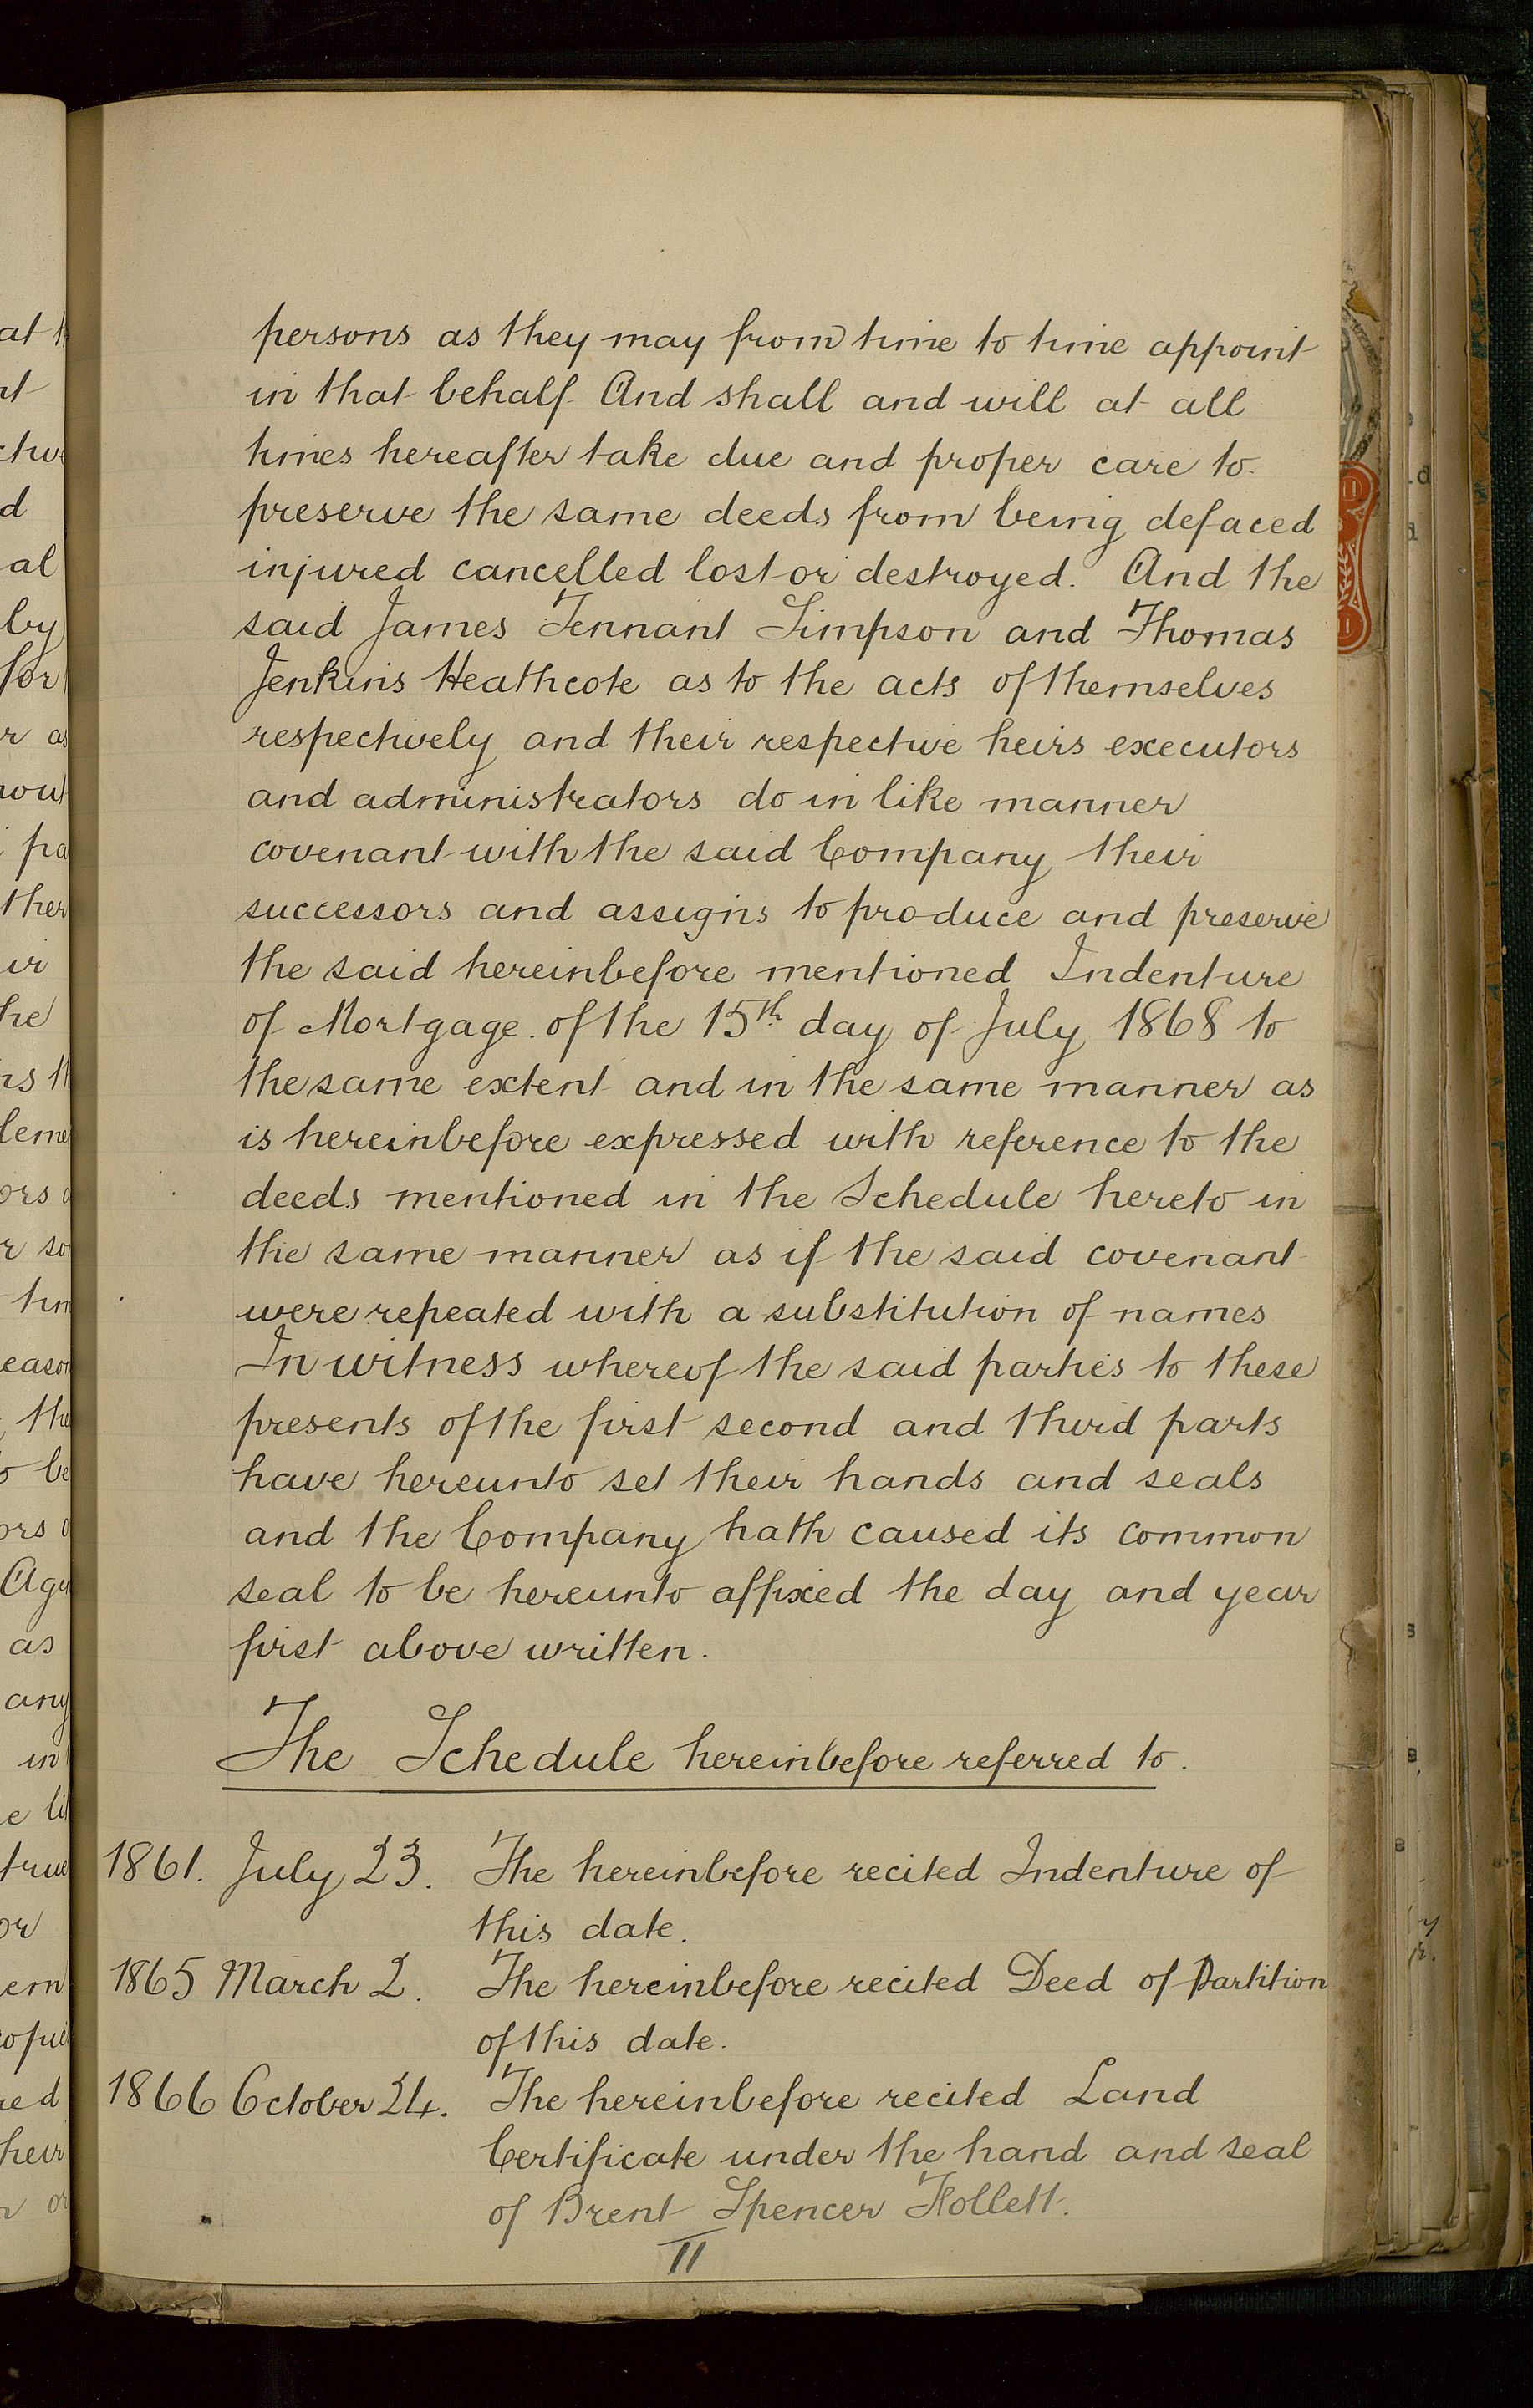 persons as they may from time to time appoint
in that behalf And shall and will at all
times hereafter take due and proper care to
preserve the same deeds from being defaced
injured cancelled lost or destroyed. And the
said James Tennant Simpson and Thomas
Jenkins Heathcote as to the acts of themselves
respectively and their respective heirs executors
and administrators do in like manner
covenant with the said Company their
successors and assigns to produce and preserve
the said hereinbefore mentioned Indenture
of Mortgage of the 15th day of July 1868 to
the same extent and in the same manner as
is hereinbefore expressed with reference to the
deeds mentioned in the Schedule hereto in
the same manner as if the said covenant
were repeated with a substitution of names
In witness whereof the said parties to these
presents of the first second and third parts
have hereunto set their hands and seals
and the Company hath caused its common
seal to be hereunto affixed the day and year
first above written.
The Schedule hereinbefore referred to.
1861. July 23. The hereinbefore recited Indenture of
this date.
1865 March 2. The hereinbefore recited Deed of Partition
of this date.
1866 October 24. The hereinbefore recited Land
Certificate under the hand and seal
of Brent Spencer Follett.
11